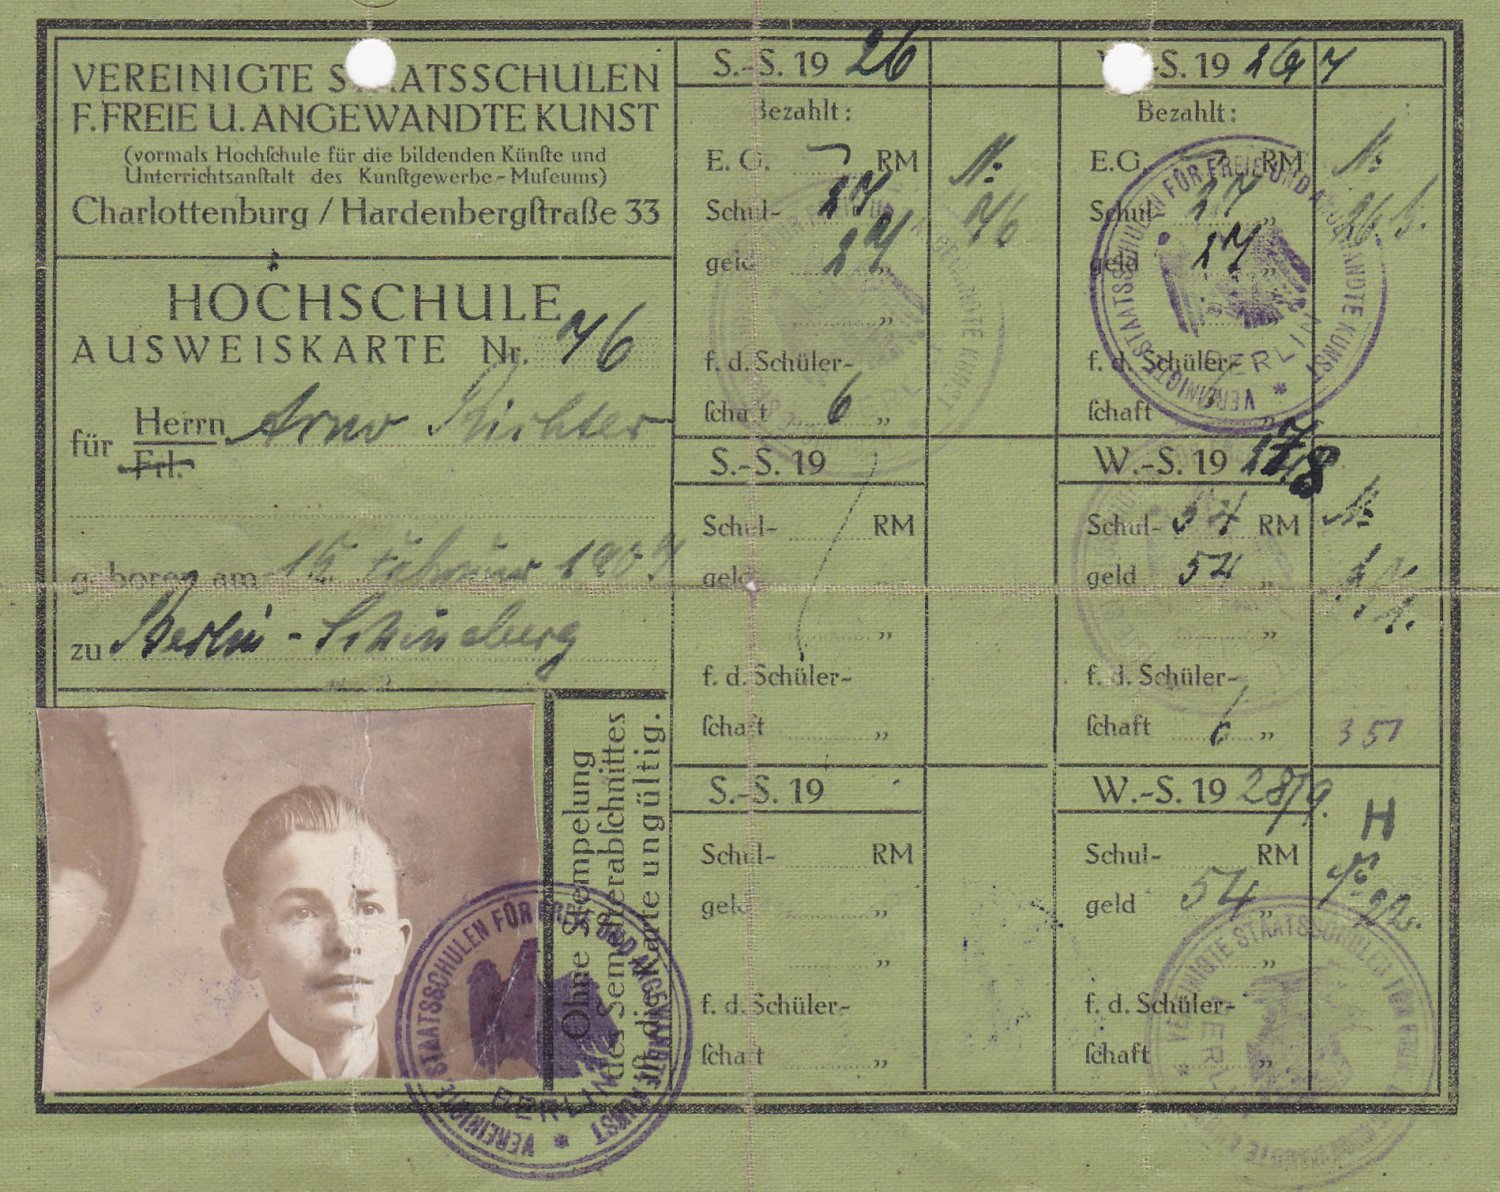 VEREINIGTE STAATSSCHULEN
F. FREIE U. ANGEWANDTE KUNST
(vormals Hochſchule für die bildenden Künſte und
Unterrichtsanſtalt des Kunſtgewerbe-Muſeums)
Charlottenburg / Hardenbergſtraße 33
HOCHSCHULE
AUSWEISKARTE Nr. 76
für Herrn Arno Richter
Frl.
geboren am 15. Februar 1907
zu Berlin - Schöneberg
Ohne Stempelung
des Semeſterabſchnittes
iſt die Karte ungültig.
VEREINIGTE STAATSSCHULEN FÜR FREIE UND ANGEWANDTE KUNST
BERLIN
S.-S. 19 26
Bezahlt:
E. G. RM
Schul- 27 „ 76
geld 27 „
„
f. d. Schüler-
ſchaft 6 „
S.-S. 19
Schul- RM
geld „
„
f. d. Schüler-
ſchaft „
S.-S. 19
Schul- RM
geld „
„
f. d. Schüler-
ſchaft „
W.-S. 19 26/7
Bezahlt:
E. G. RM
Schul- 27 „
geld 27 „
„
f. d. Schüler-
ſchaft 6 „
VEREINIGTE STAATSSCHULEN FÜR FREIE UND ANGEWANDTE KUNST
BERLIN
W.-S. 19 27/8
Schul- 54 RM
geld 54 „
„
f. d. Schüler-
ſchaft 6 „ 351
W.-S. 19 28/9. H
Schul- RM
geld 54 „
„
f. d. Schüler-
ſchaft „
VEREINIGTE STAATSSCHULEN FÜR FREIE UND ANGEWANDTE KUNST
BERLIN